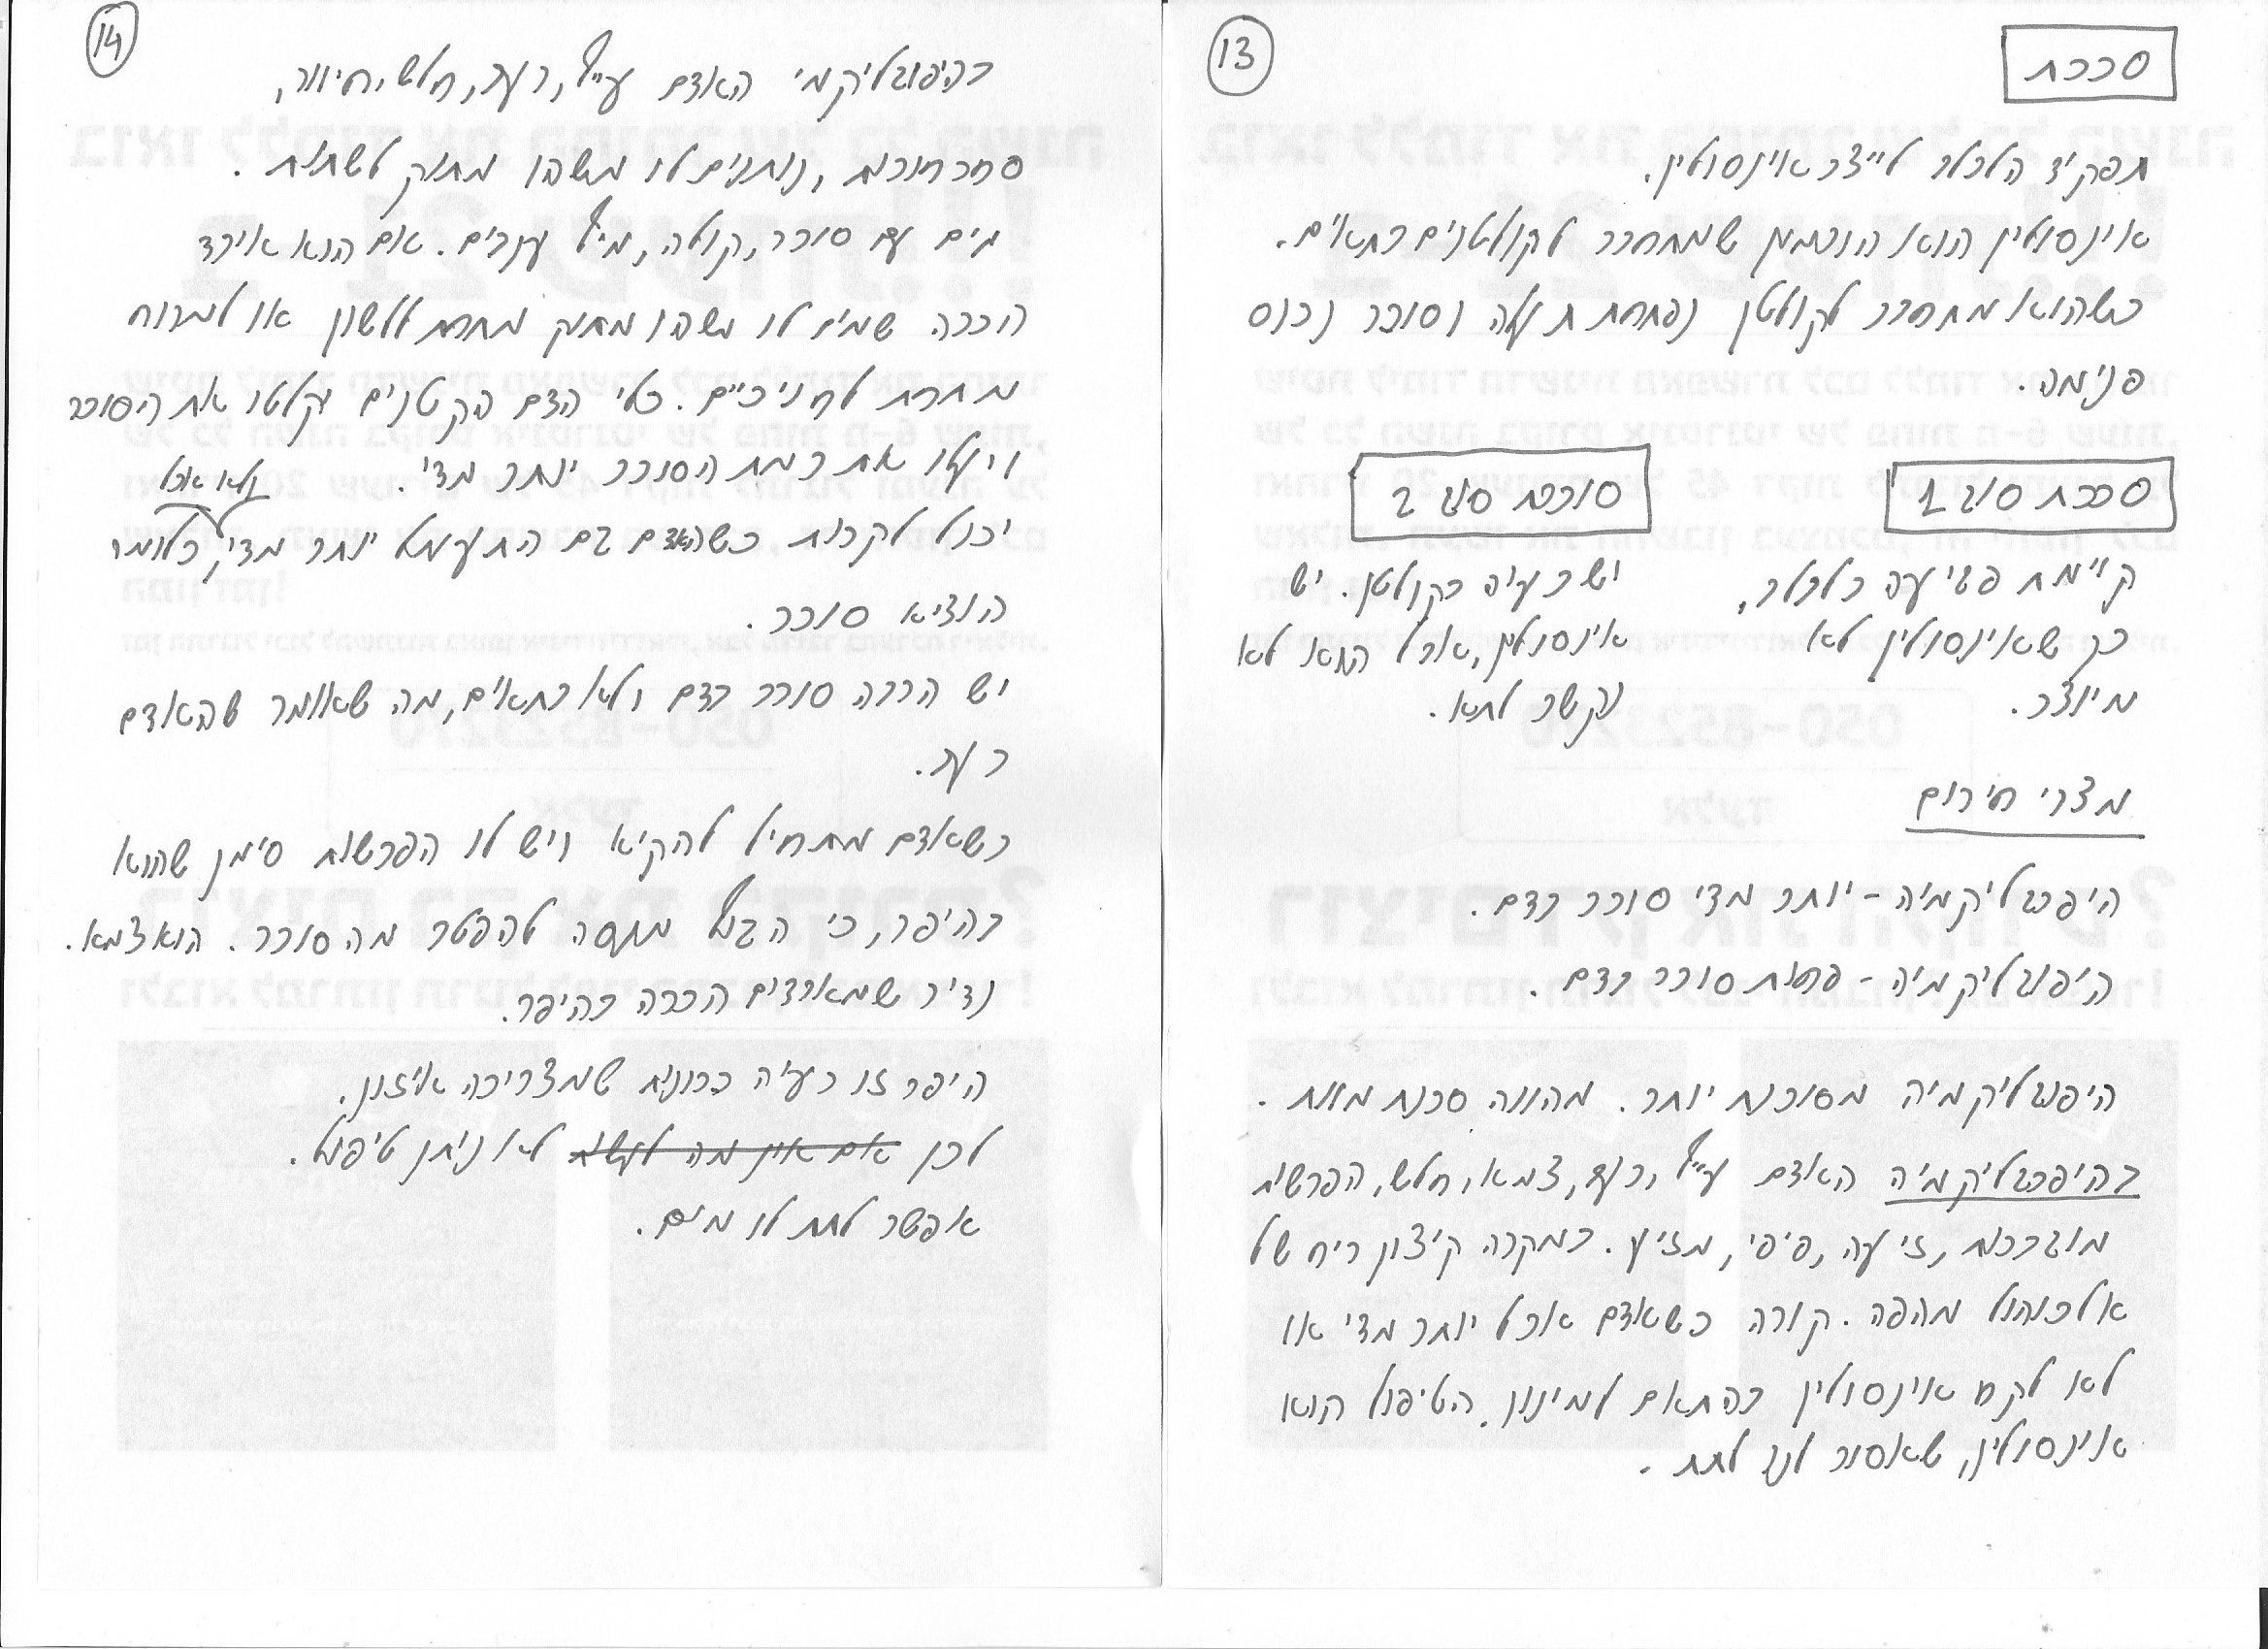 13
סכרת
תפקיד הלבלב לייצר אינסולין.
אינסולין הוא הורמון שמתחבר לקולטנים בתאים.
כשהוא מתחבר לקולטן נפתחת תעלה וסוכר נכנס
פנימה.
סכרת סוג 1
קיימת פגיעה בלבלב,
כך שאינסולין לא
מיוצר.
סוכרת סוג 2
יש בעיה בקולטן. יש
אינסולין, אבל הוא לא
נקשר לתא.
מצבי חירום
היפרגליקמיה - יותר מדי סוכר בדם.
היפוגליקמיה - פחות סוכר בדם.
היפוגליקמיה מסוכנת יותר. מהווה סכנת מוות.
בהיפרגליקמיה האדם עייף, רעב, צמא, חלש, הפרשות
מוגברות, זיעה, פיפי, מזיע. במקרה קיצון ריח של
אלכוהול מהפה. קורה כשאדם אוכל יותר מדי או
לא לקח אינסולין בהתאם למינון. הטיפול הוא
אינסולין, שאסור לנו לתת.
14
בהיפוגליקמי האדם עייף, רעב, חלש, חיוור,
סחרחורות, נותנים לו משהו מתוק לשתות.
מים עם סוכר, קולה, מיץ ענבים. אם הוא איבד
הכרה שמים לו משהו מתוק מתחת ללשון או למרוח
מתחת לחניכיים. כלי הדם הקטנים יקלטו את הסוכר
ויעלו את רמת הסוכר יותר מדי.
ולא אכל
יכול לקרות כשהאדם גם התעמל יותר מדי, כלומר
הוציא סוכר.
יש הרבה סוכר בדם ולא בתאים, מה שאומר שהאדם
רעב.
כשאדם מתחיל להקיא ויש לו הפרשות סימן שהוא
בהיפר, כי הגוף מנסה להפטר מהסוכר. הוא צמא.
נדיר שמאבדים הכרה בהיפר.
היפר זו בעיה כרונית שמצריכה איזון.
לכן אם אין מה לעשות לא ניתן טיפול.
אפשר לתת לו מים.